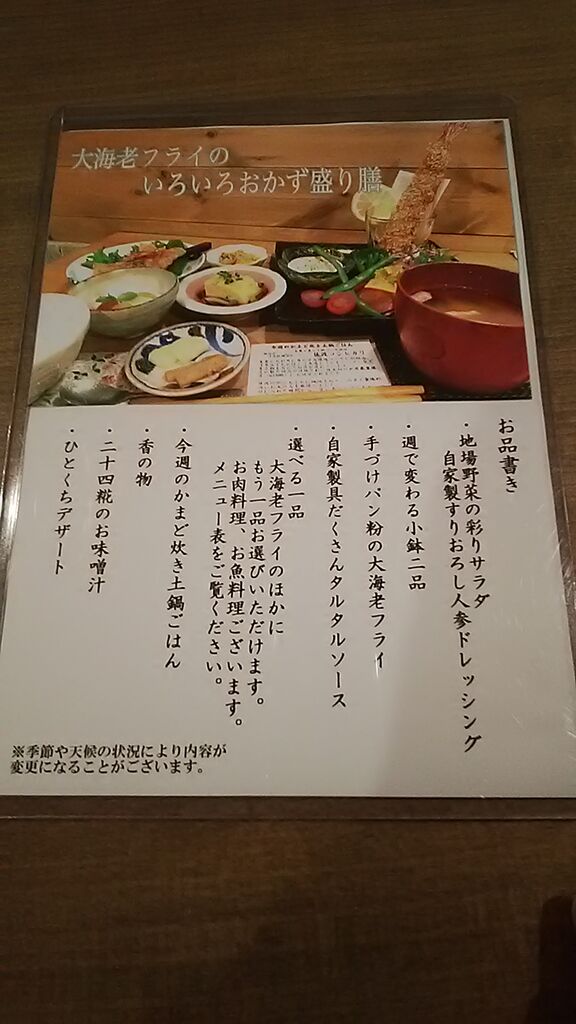 大海老フライの
いろいろおかず盛り膳
お品書き
・地場野菜の彩りサラダ
自家製すりおろし人参ドレッシング
・週で変わる小鉢二品
・手づけパン粉の大海老フライ
・自家製具だくさんタルタルソース
・選べる一品
大海老フライのほかに
もう一品お選びいただけます。
お肉料理、お魚料理ございます。
メニュー表をご覧ください。
・今週のかまど炊き土鍋ごはん
・香の物
・二十四糀のお味噌汁
・ひとくちデザート
※季節や天候の状況により内容が
変更になることがございます。